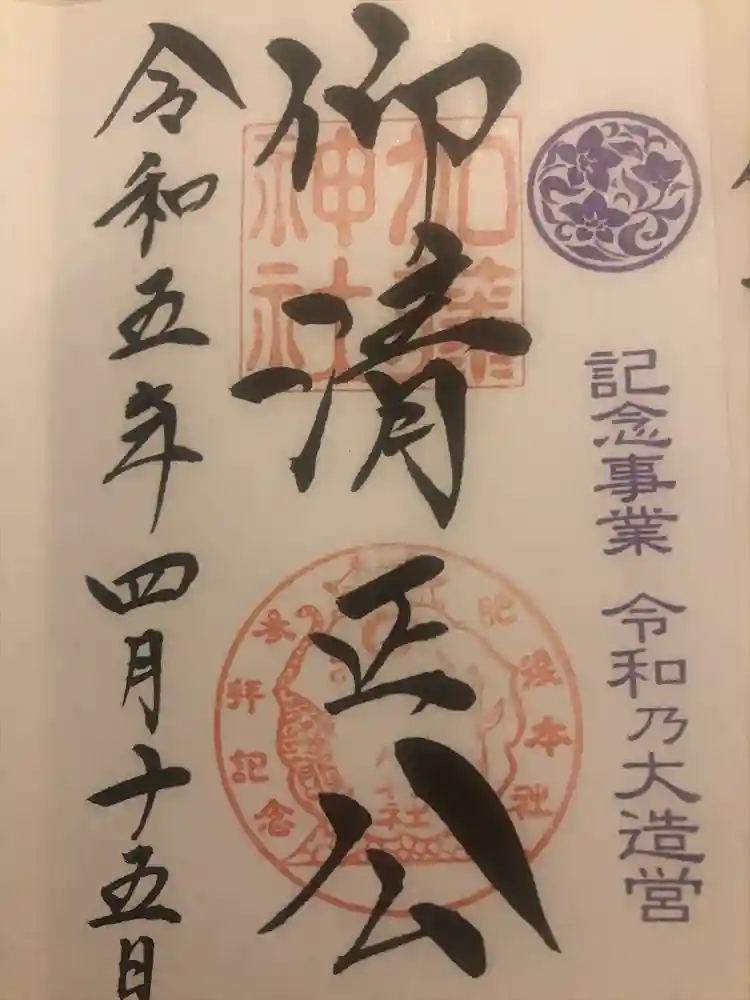 記念事業 令和乃大造営
仰清正公
加藤
神社
肥後本社
参拝記念
令和五年四月十五日